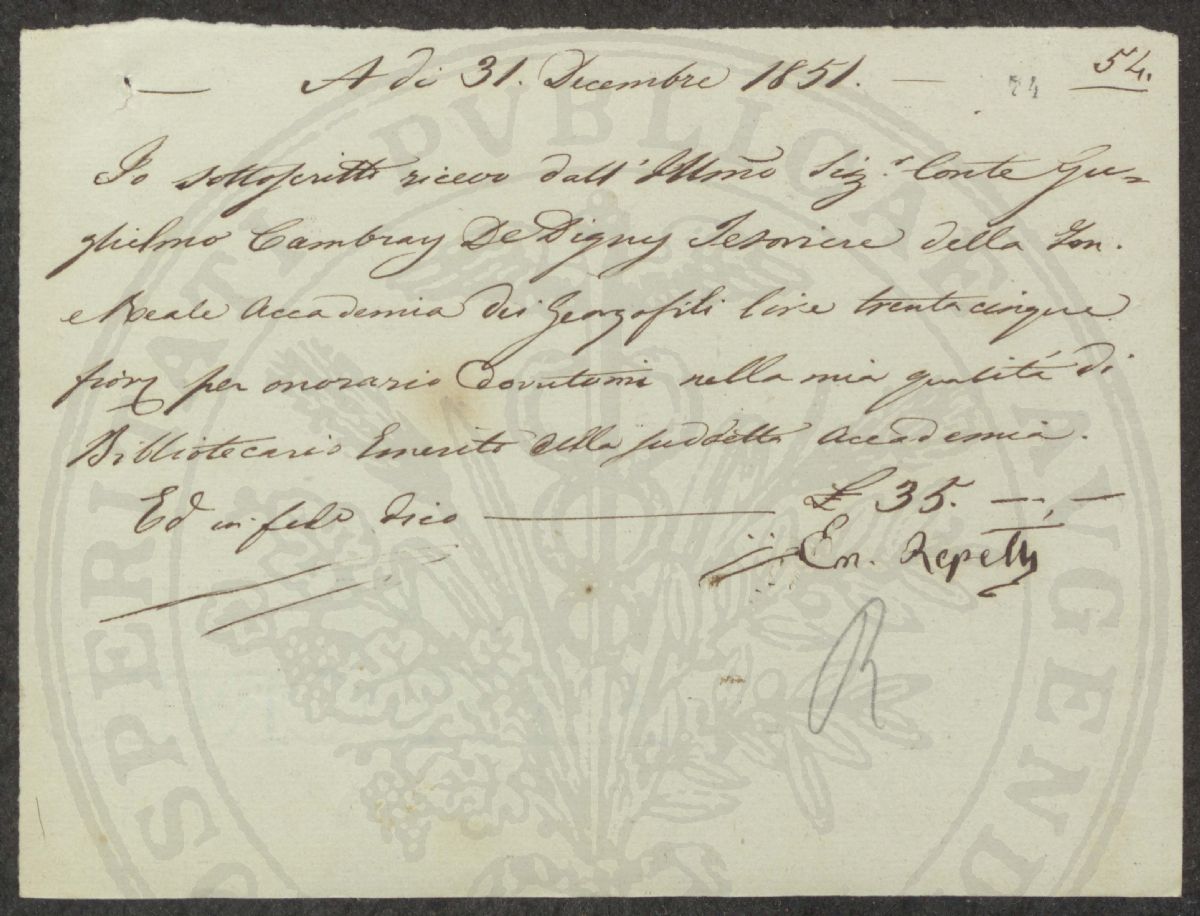 54.
A di 31. Decembre 1851.
74
Io sottoscritto ricevo dall' Illmo Sig.r Conte Gu=
glielmo Cambray De Digny Tesoriere della Imp.
e Reale Accademia dei Georgofili lire trentacinque
fior per onorario dovutomi nella mia qualità di
Bibliotecario Emerito della suddetta Accademia.
Ed in fede dico — £ 35. — , —
Em. Repetti
R
PROSPERITATI PVBLICAE AVGENDAE